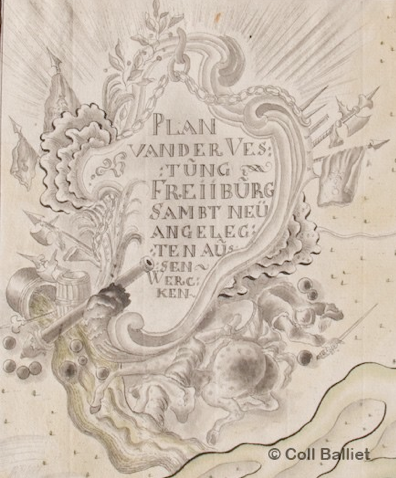 PLAN
VANDER VES:
:TŮNG
FREIIBŮRG
SAMBT NEŰ
ANGELEG:
:TEN AŮS
SEN
WERC:
KEN
© Coll Balliet